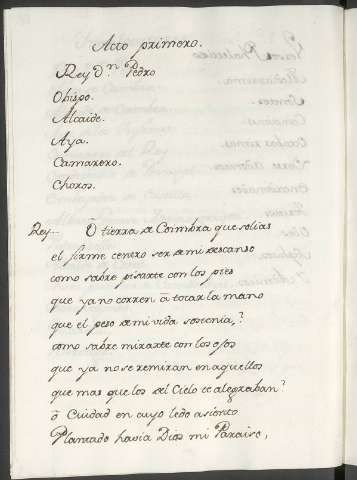 Acto primero.
Rey D.n Pedro
Obispo.
Alcaide.
Aya.
Camarero.
Choros.
Rey... Ō tierra de Coimbra que solias
el firme centro ser de mi descanso
como sabre pisarte con los pies
que ya no corren ā tocar la mano
que el peso de mi vida sostenia,?
como sabre mirarte con los ojos
que ya no se remiran en aquellos
que mas que los del Cielo te alegraban?
ō Ciudad en cuyo ledo asiento
Plantado havia Dios mi Paraiso,